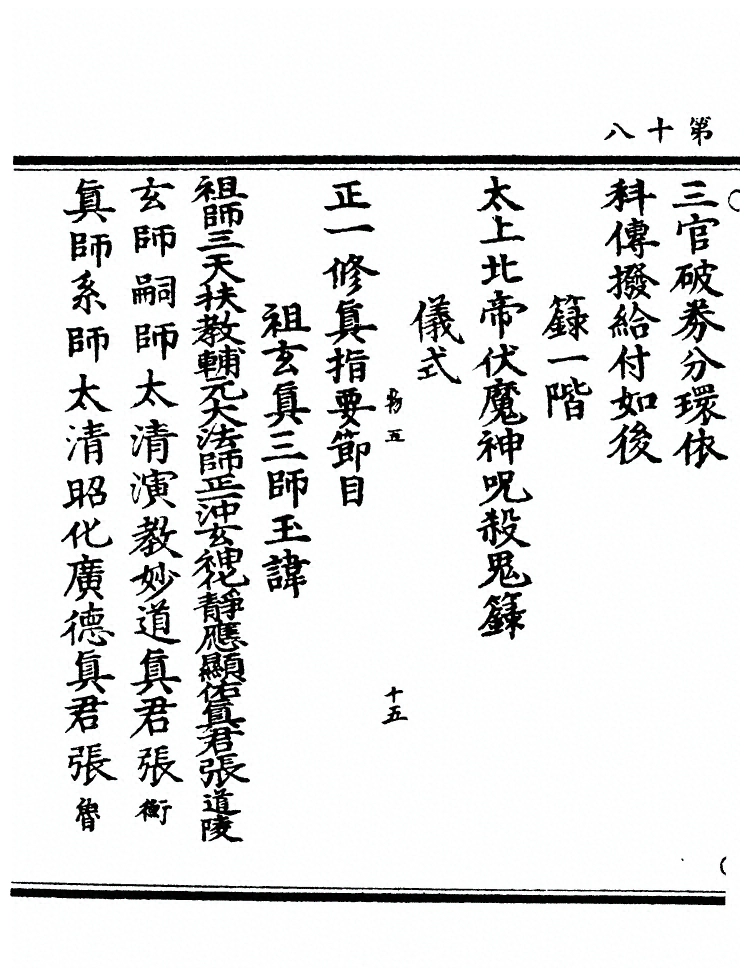 第十八
三官破券分環依
科傳撥給付如後
籙一階
太上北帝伏魔神呪殺鬼籙
儀式
五
十五
正一修眞指要節目
祖玄眞三師玉諱
祖師三天扶教輔元大法師正一沖玄神化靜應顯佑眞君張道陵
玄師嗣師太清演教妙道眞君張衡
眞師系師太清昭化廣德眞君張魯